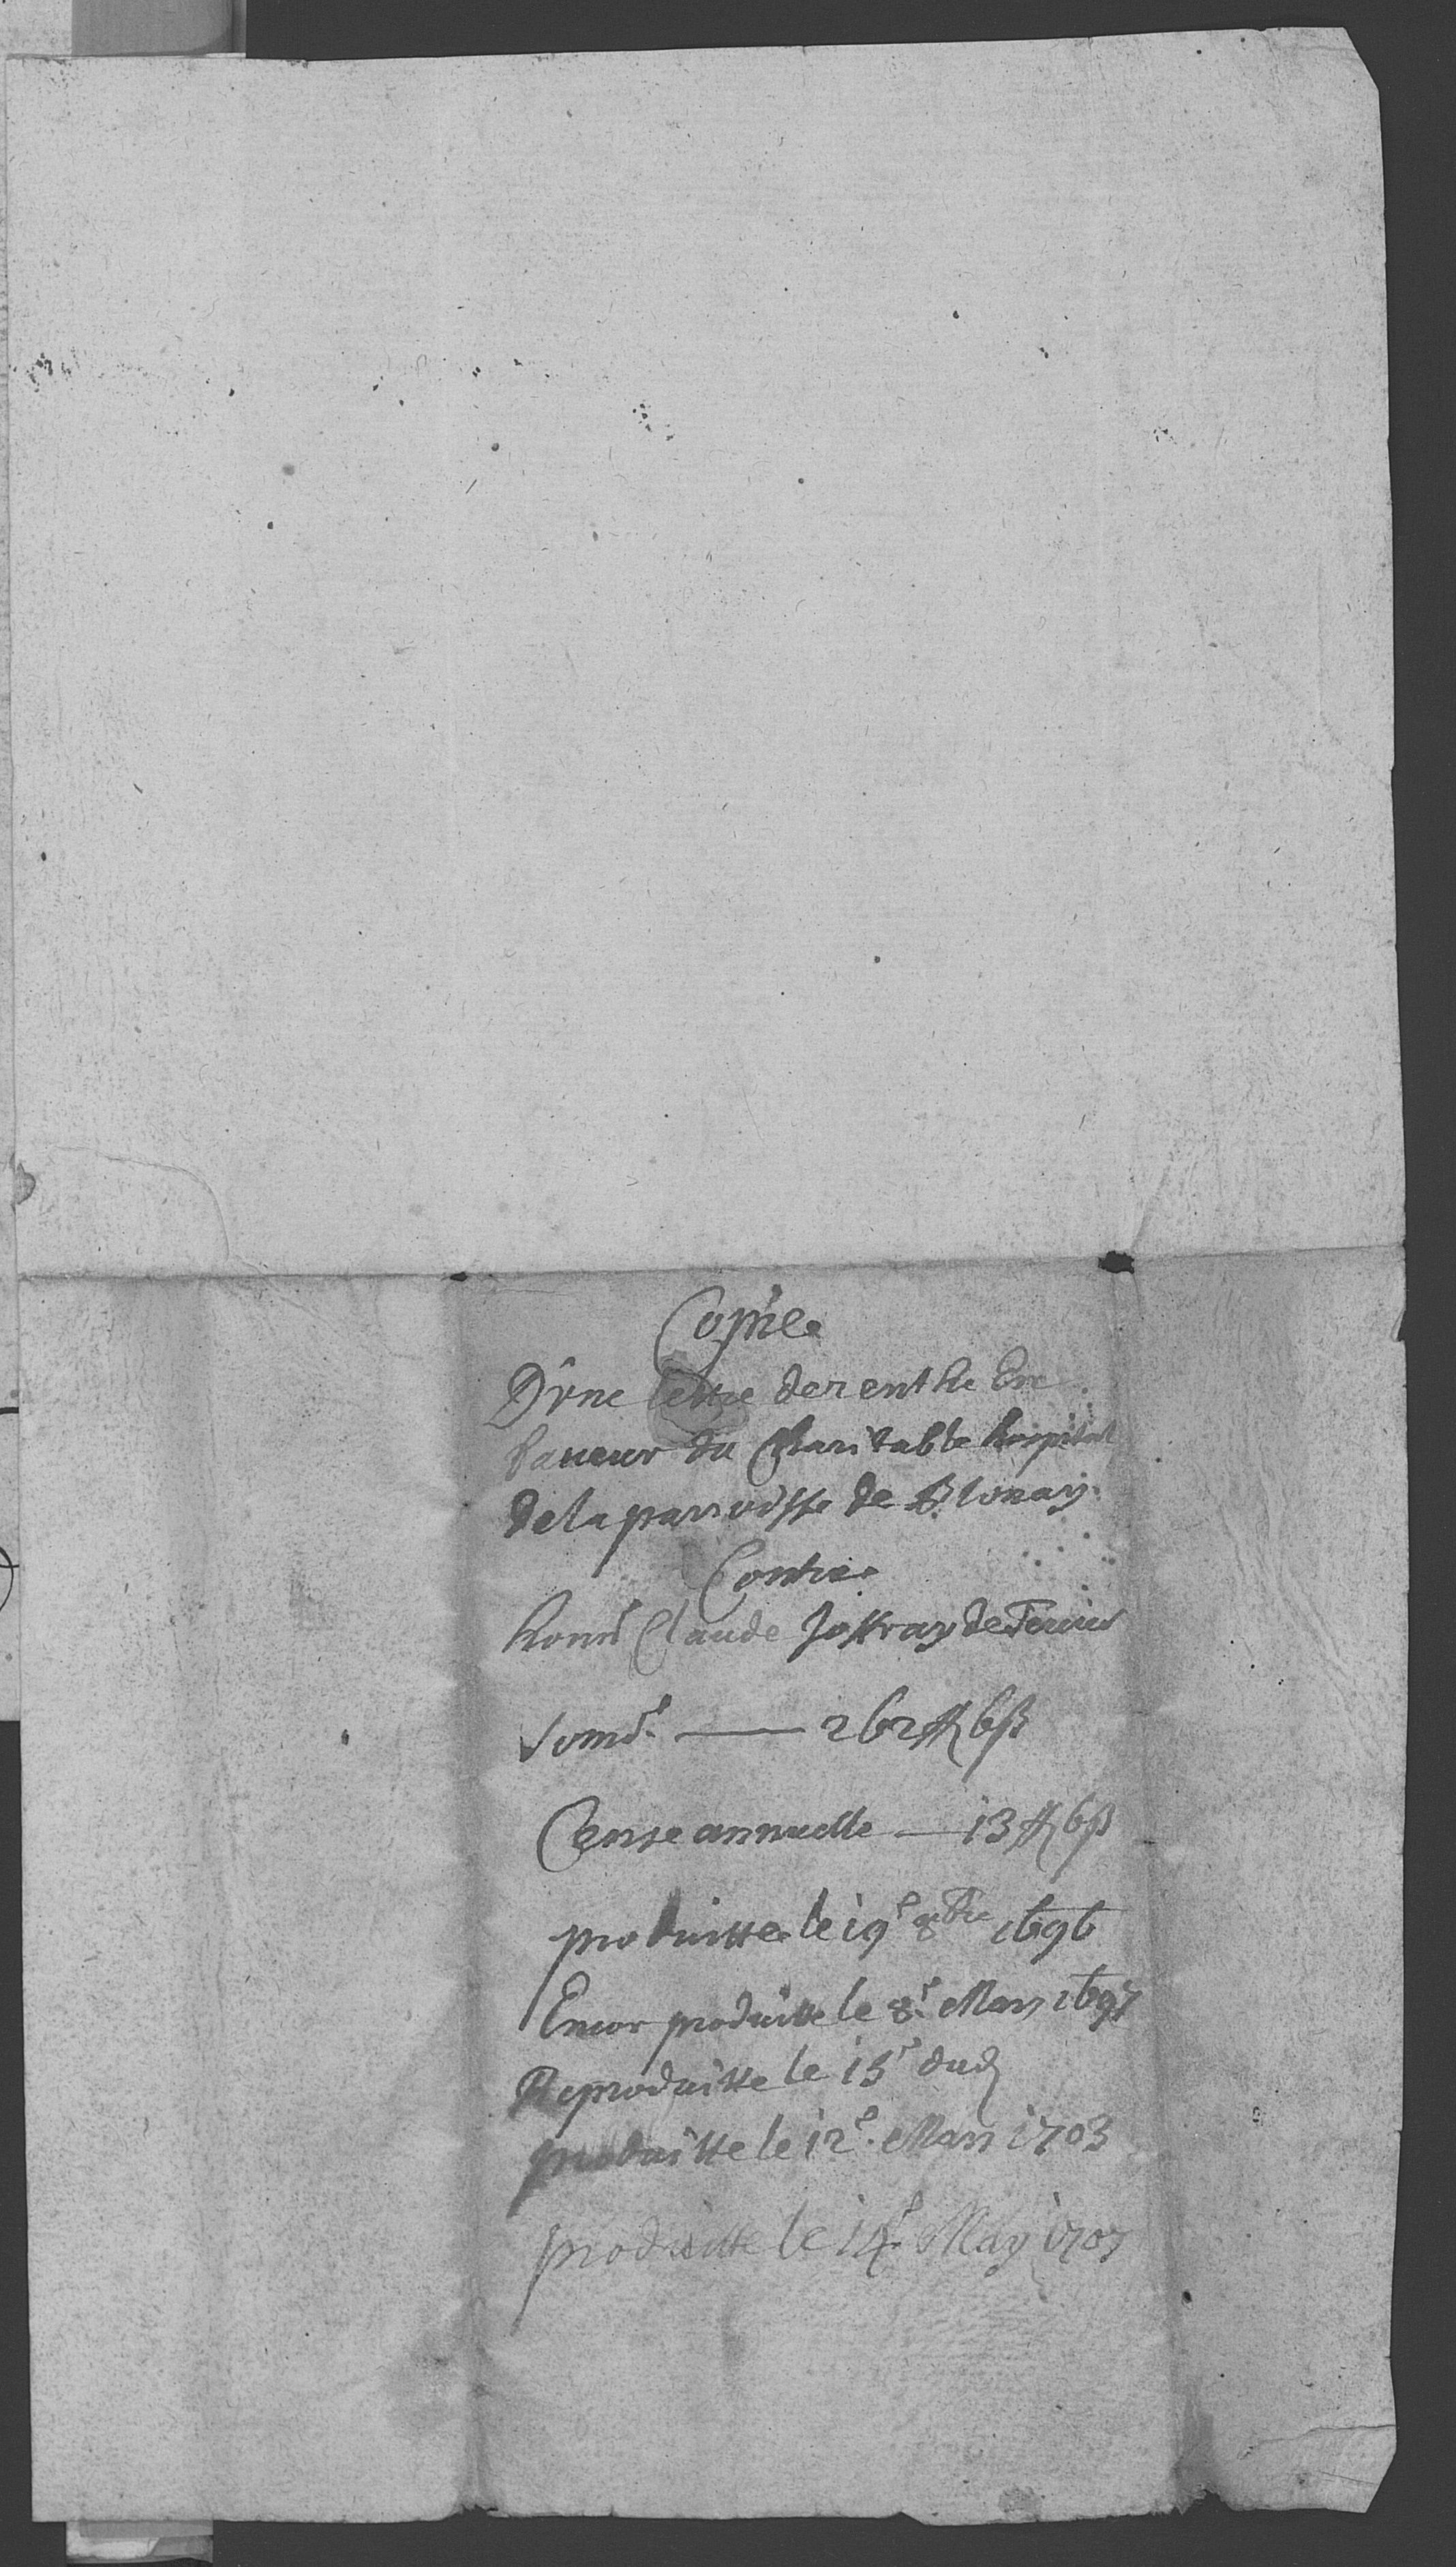 Copie
D'vne lettre de renthe En
faueur du Charitable hospital
de la parroisse de Blonay
Contre
honn Claude Joffray de
Som͞e — 262 ff 6 ß
Cense annuelle — 13 ff 6 ß
produitte le 19e 8bre 1696
Encor produitte le 8e Mars 1697
Reproduitte le 15e dud
produitte le 12e Mars 1703
produitte le 14e May 1707